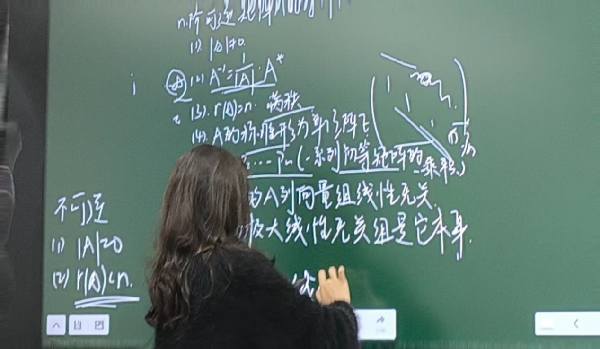 n阶可逆矩阵A的
(1). |A|≠0.
(2) A⁻¹=1/|A|·A*
(3). r(A)=n. 满秩
(4). A的标准形为单位阵E
(一系列初等矩阵的乘积)
的A列向量组线性无关.
极大线性无关组是它本身.
不可逆
(1) |A|=0
(2) r(A)<n.